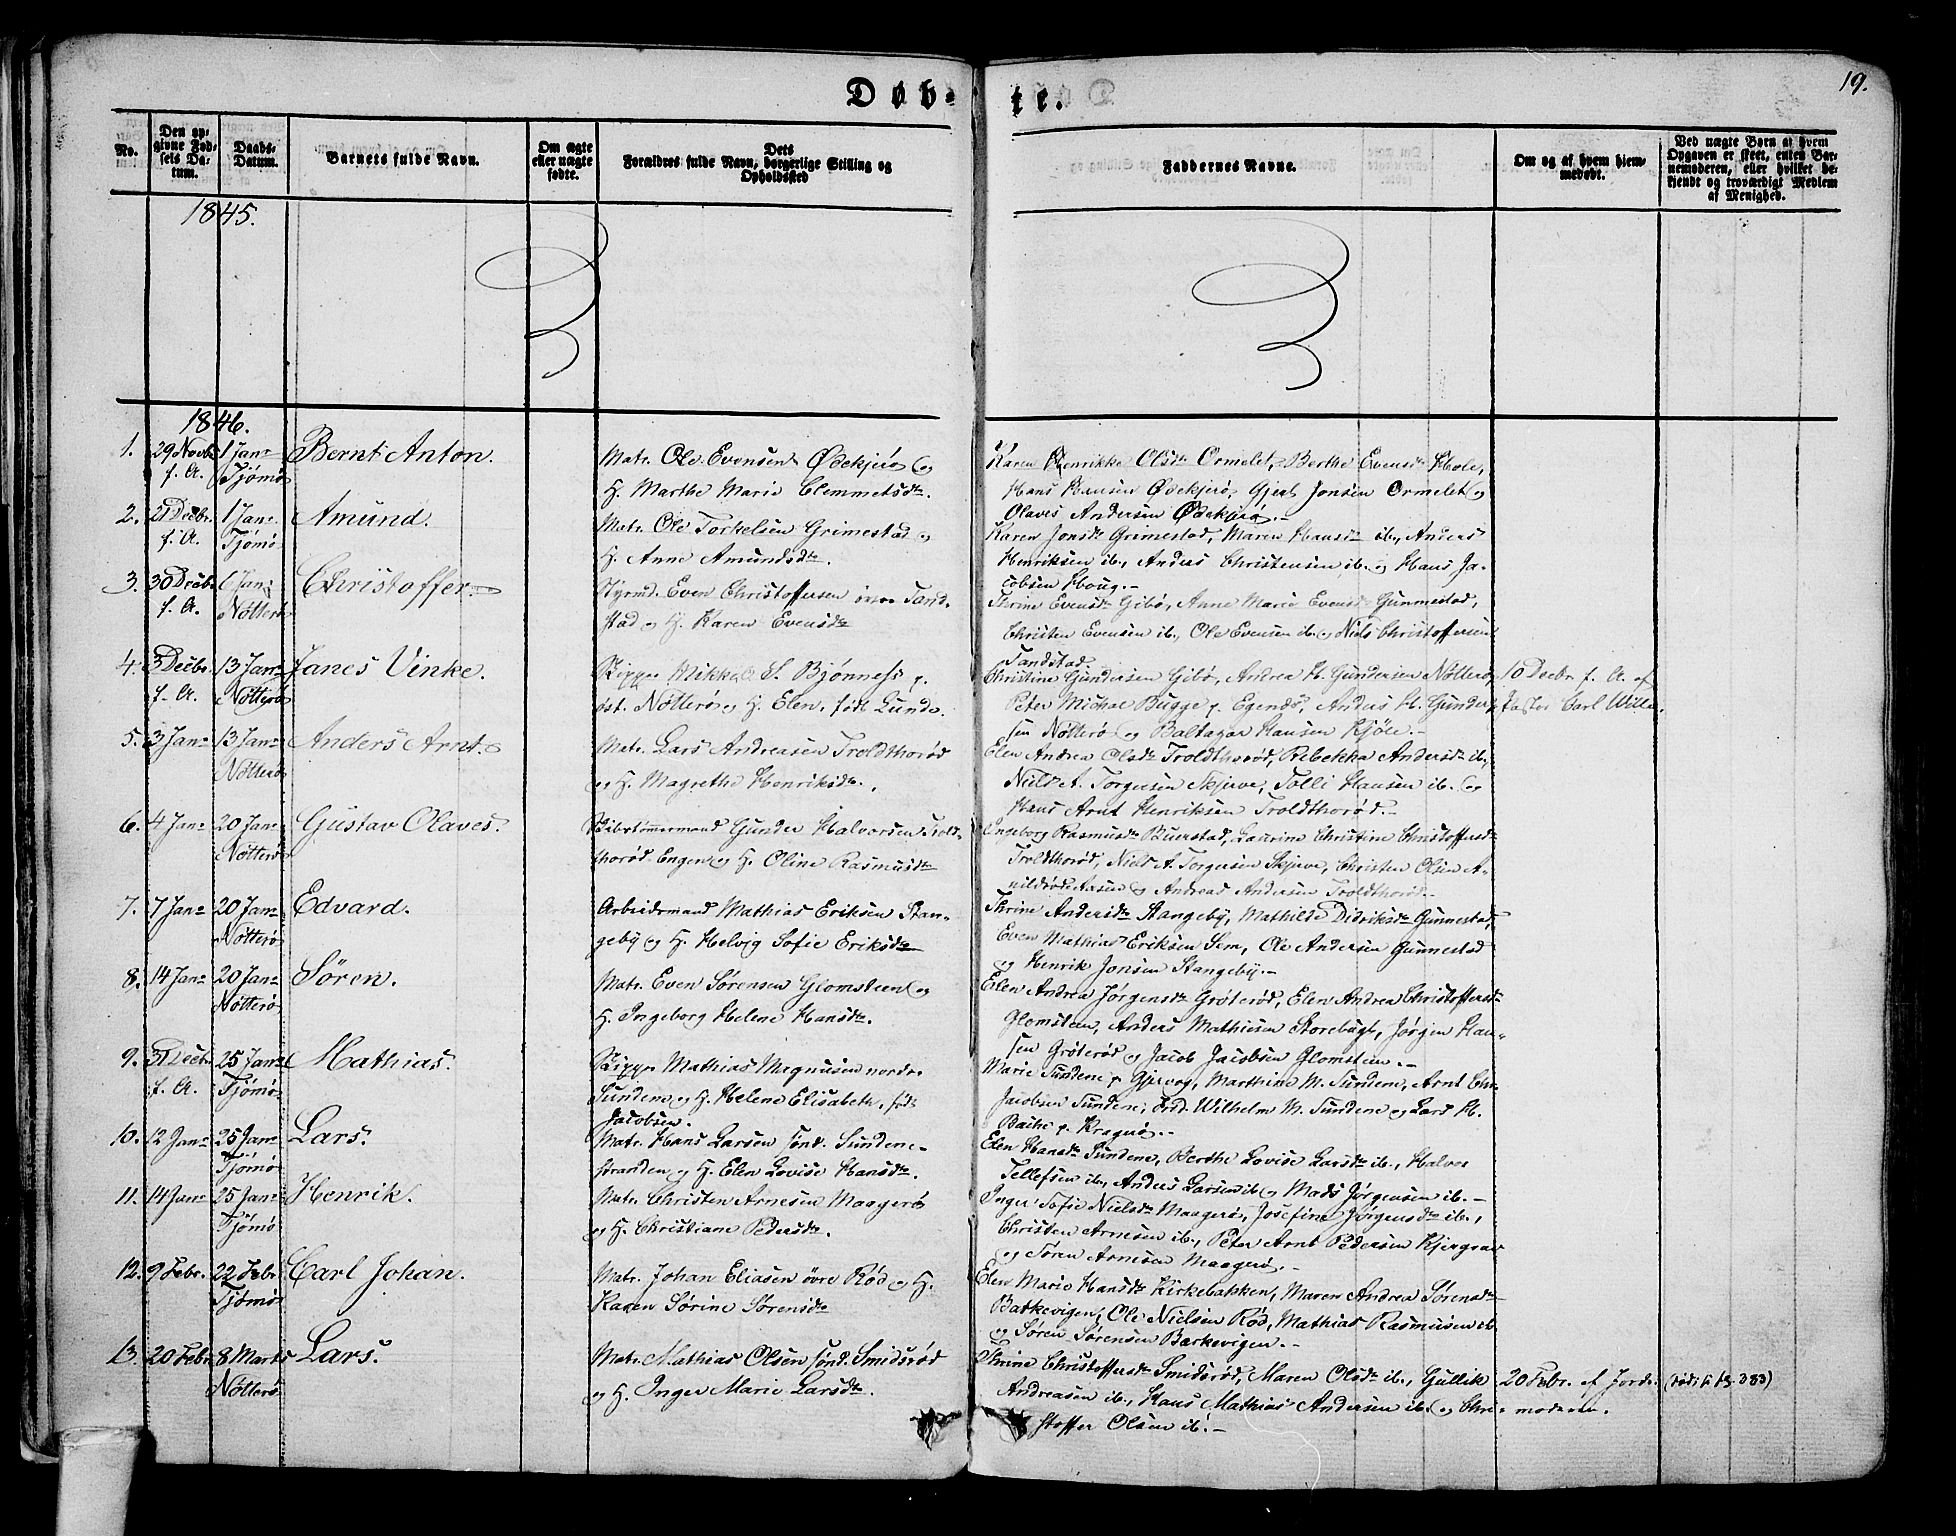 19.
Døb- te.
No.
Den op-
givne Fød-
sels Da-
tum.
Daabs-
Datum.
Barnets fulde Navn.
Om ægte
eller uægte
fødte.
Dets
Forældres fulde Navn, borgerlige Stilling og
Opholdssted
Faddernes Navne.
Om og af hvem hjem-
medøbt.
Ved uægte Børn af hvem
Opgaven er skeet, enten Bar-
nemoderen, eller hvilket be-
kjendt og troværdigt Medlem
af Menighed.
1845.
1846.
1. 29 Novbr f. A. 1 Janr Tjömø Bernt Anton.
Matr. Ole Evensen Ødekjerø og
H. Marthe Marie Clemmetsdtr.
Karen Henrikke Olsdtr Ormelet, Berthe Evensdtr Hole,
Hans Hansen Ødekjerø, Gjert Jonsen Ormelet og
Olaves Andersen Ødekjerø.-
2. 21 Decbr. f. A. 1 Janr Tjömø Amund.
Matr. Ole Torkelsen Grimestad og
H. Anne Amundsdtr.
Karen Jonsdtr Grimestad, Maren Hansdtr ib., Anders
Henriksen ib., Anders Christensen ib. og Hans Ja-
cobsen Houg.-
3. 30 Decbr f. A. 6 Janr Nötterö Christoffer.
Styrmd. Even Christoffersen Tand-
stad og H. Karen Evensdtr
Thrine Evensdtr Gibø, Anne Marie Evensdtr Gunnestad,
Christen Evensen ib., Ole Evensen ib. og Niels Christoffersen
Tandstad.
4. 3 Decbr. f. A. 13 Janr Nötterö Janes Vinke.
Skipper Mikkel S. Bjönness p.
öst. Nötterö og H. Elen, født Lund.
Christine Gundersen Gibø, Andrea H. Gundersen Nötterö,
Peter Michael Bugge p. Egenæs, Anders H. Gunder-
sen Nötterö og Baltazar Hansen Kjöle.-
10 Decbr f. A. af
Pastor Carl Wille.
5. 3 Janr 13 Janr Nötterö Anders Arnt.
Matr. Lars Andreasen Troldthorød
og H. Magrethe Henriksdtr.
Elen Andrea Olsdtr Troldthorød, Rebekka Andersdtr ib.,
Niels A. Torgersen Skjerve, Tolli Hansen ib. og
Hans Arnt Henriksen Troldthorød.-
6. 4 Janr 20 Janr Nötterö Gustav Olaves.
Skibstømmermand Gunder Halvorsen Trold-
thorød-Engen og H. Oline Rasmusdtr
Ingeborg Rasmusdtr Buerstad, Laurine Christine Christoffersdtr
Troldthorød, Niels A. Torgersen Skjerve, Christen Olsen A-
nildrød Aasen og Andreas Andersen Troldthorød.-
7. 7 Janr 20 Janr Nötterö Edvard.
Arbeidsmand Mathias Eriksen Stan-
geby og H. Helvig Sofie Eriksdtr
Thrine Andersdtr Stangeby, Mathilde Didriksdtr Gunnestad,
Even Mathias Eriksen Sem, Ole Andersen Gunnestad
og Henrik Jonsen Stangeby.-
8. 14 Janr 20 Janr Nötterö Sören.
Matr. Even Sörensen Glomsteen og
H. Ingeborg Helene Hansdtr.
Elen Andrea Jörgensdtr Gröterød, Elen Andrea Christoffersdtr
Glomsteen, Anders Mathisen Storebugt, Jörgen Han-
sen Gröterød og Jacob Jacobsen Glomsteen.-
9. 31 Decbr. f. A. 25 Janr Tjömø Mathias.
Skipper Mathias Magnusen nordr.
Sundene og H. Helene Elisabeth, født
Jacobsen.
Marie Sundene p. Gjervog, Marthine M. Sundene, Arnt Chr.
Jacobsen Sundene, Fred. Wilhelm M. Sundene og Lars H.
Bache p. Kragerø.-
10. 12 Janr 25 Janr Tjömø Lars.
Matr. Hans Larsen sönd. Sundene-
stranden og H. Elen Lovise Hansdtr.
Elen Hansdtr Sundene, Berthe Lovise Larsdtr ib., Halvor
Tellefsen ib., Anders Larsen ib. og Mads Jörgensen ib.-
11. 14 Janr 25 Janr Tjömø Henrik.
Matr. Christen Arnesen Maagerø
og H. Christiane Pedersdtr.
Inger Sofie Nielsdtr Maagerø, Josefine Jörgensdtr ib.,
Christen Arnesen ib., Peter Arnt Pedersen Kjergnæs
og Sören Arnesen Maagerø.-
12. 9 Febr. 22 Febr Tjömø Carl Johan.
Matr. Johan Eliasen övre Röd og H.
Karen Sörine Sörensdtr
Elen Marie Hansdtr Kirkebakken, Maren Andrea Sörensdtr
Barkevigen, Ole Nielsen Röd, Mathias Rasmusen ib.
og Sören Sörensen Barkevigen.-
13. 20 Febr 8 Marts Nötterö Lars.
Matr. Mathias Olsen sönd. Smidsrød
og H. Inger Marie Larsdtr.
Thrine Christoffersdtr Smidsrød, Maren Olsdtr ib., Gullik
Andreasen ib., Hans Mathias Andersen ib. og Chri-
stoffer Olsen ib.-
20 Febr. af Jord-
moderen.